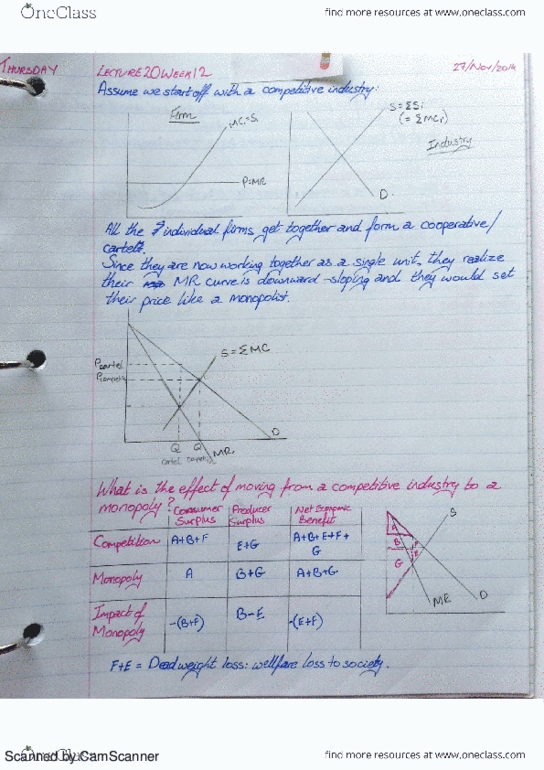 OneClass
find more resources at www.oneclass.com
THURSDAY
LECTURE 20 WEEK 12
27/Nov/2014
Assume we start off with a competitive industry:
Firm
MC=S
P=MR
S=ΣSi
(=ΣMCi)
Industry
D
All the individual firms get together and form a cooperative/
cartel.
Since they are now working together as a single unit, they realize
their MR curve is downward-sloping and they would set
their price like a monopolist.
Pcartel
Pcompete
S=ΣMC
D
Q
cartel
Q
MR
What is the effect of moving from a competitive industry to a
monopoly?
Consumer
Surplus
Producer
Surplus
Net Economic
Benefit
Competition
A+B+F
E+G
A+B+E+F+
G
Monopoly
A
B+G
A+B+G
Impact of
Monopoly
-(B+F)
B-E
-(E+F)
A
B
G
F
E
S
MR
D
F+E = Deadweight loss: wellfare loss to society.
OneClass
Scanned by CamScanner
find more resources at www.oneclass.com